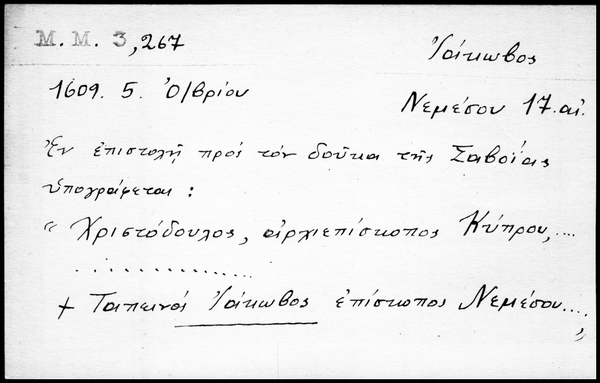 M. M. 3,267
Ἰάκωβος
1609. 5. Ὀ/βρίου
Νεμέσου 17. αἰ.
Ἐν ἐπιστολῇ πρὸς τὸν δοῦκα τῆς Σαβοΐας
ὑπογράφεται :
“ Χριστόδουλος, ἀρχιεπίσκοπος Κύπρου, ....
..............
+ Ταπεινὸς Ἰάκωβος ἐπίσκοπος Νεμέσου....”